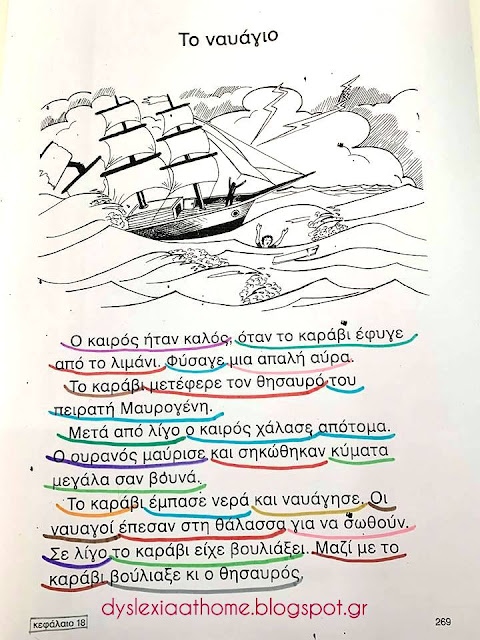 Το ναυάγιο
Ο καιρός ήταν καλός, όταν το καράβι έφυγε
από το λιμάνι. Φύσαγε μια απαλή αύρα.
Το καράβι μετέφερε τον θησαυρό του
πειρατή Μαυρογένη.
Μετά από λίγο ο καιρός χάλασε απότομα.
Ο ουρανός μαύρισε και σηκώθηκαν κύματα
μεγάλα σαν βουνά.
Το καράβι έμπασε νερά και ναυάγησε. Οι
ναυαγοί έπεσαν στη θάλασσα για να σωθούν.
Σε λίγο το καράβι είχε βουλιάξει. Μαζί με το
καράβι βούλιαξε κι ο θησαυρός.
κεφάλαιο 18
dyslexiaathome.blogspot.gr
269